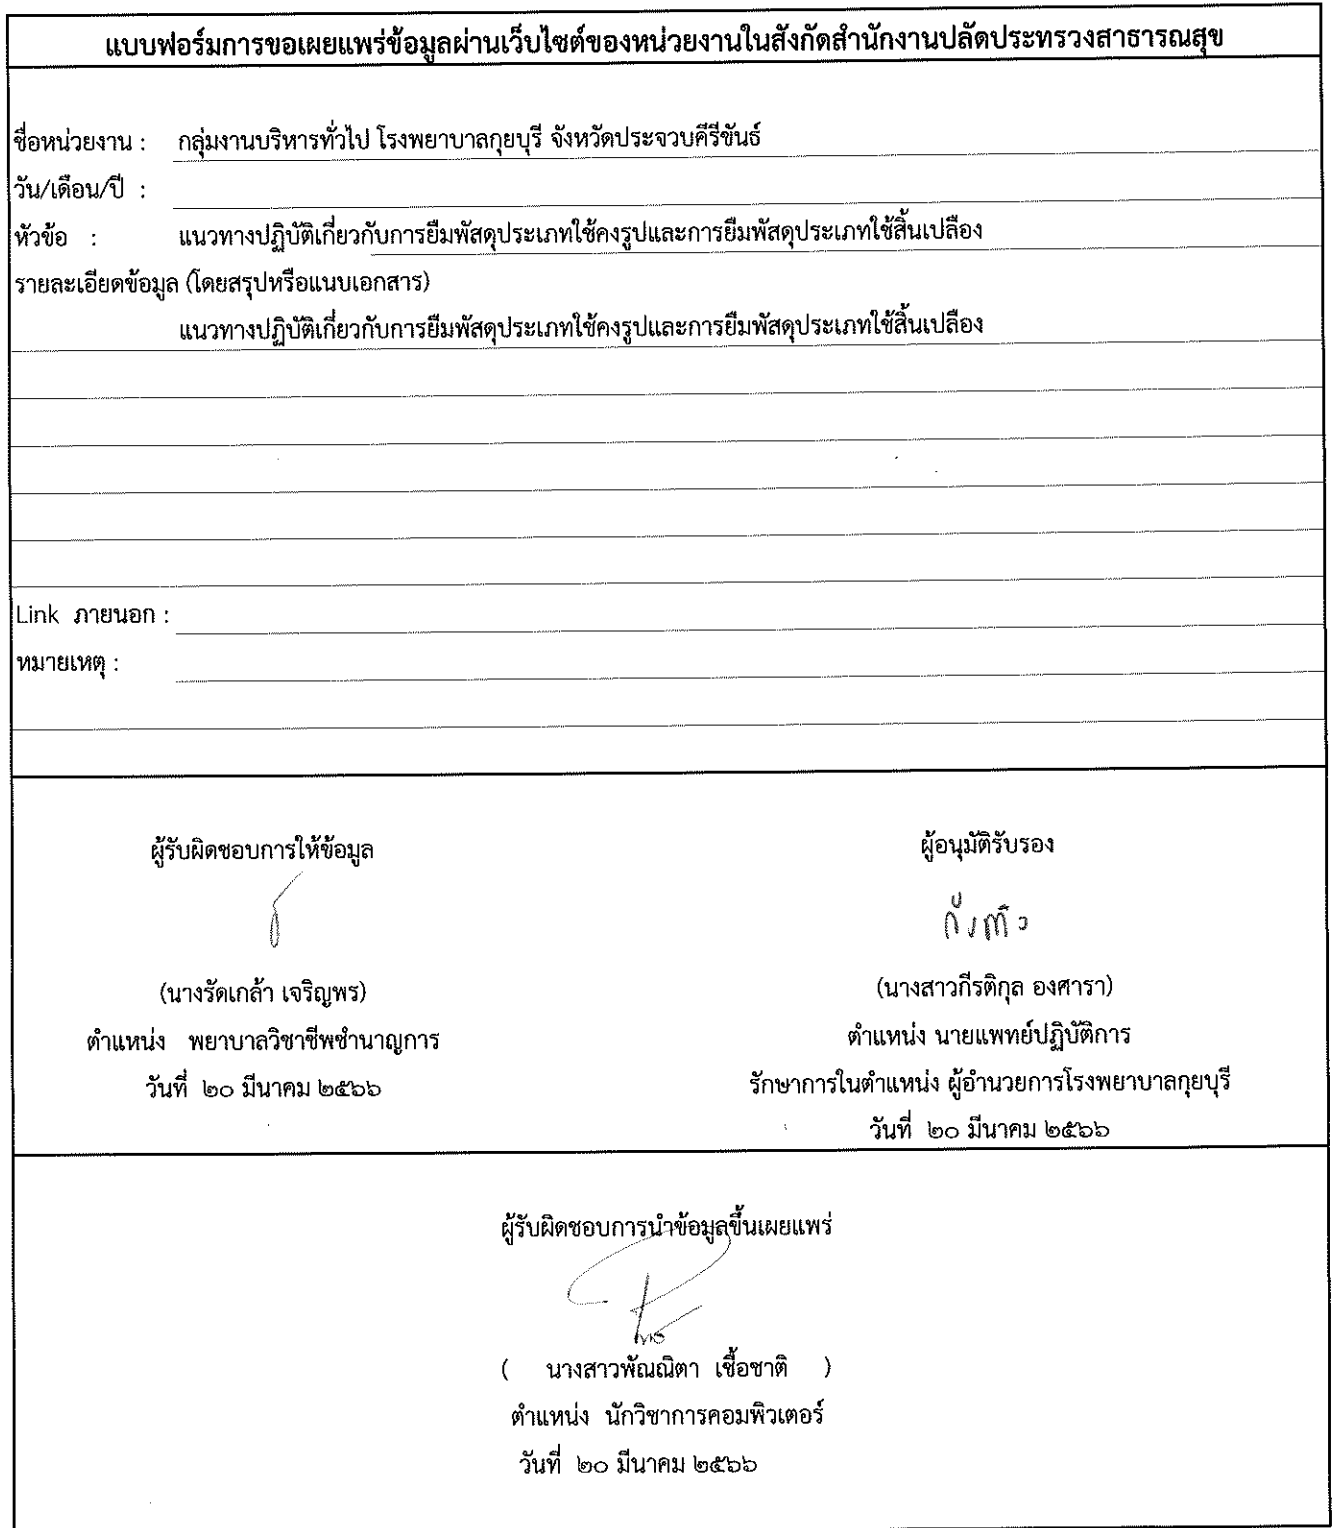 แบบฟอร์มการขอเผยแพร่ข้อมูลผ่านเว็บไซต์ของหน่วยงานในสังกัดสำนักงานปลัดประทรวงสาธารณสุข
ชื่อหน่วยงาน : กลุ่มงานบริหารทั่วไป โรงพยาบาลกุยบุรี จังหวัดประจวบคีรีขันธ์
วัน/เดือน/ปี :
หัวข้อ : แนวทางปฏิบัติเกี่ยวกับการยืมพัสดุประเภทใช้คงรูปและการยืมพัสดุประเภทใช้สิ้นเปลือง
รายละเอียดข้อมูล (โดยสรุปหรือแนบเอกสาร)
แนวทางปฏิบัติเกี่ยวกับการยืมพัสดุประเภทใช้คงรูปและการยืมพัสดุประเภทใช้สิ้นเปลือง
Link ภายนอก :
หมายเหตุ :
ผู้รับผิดชอบการให้ข้อมูล
(นางรัดเกล้า เจริญพร)
ตำแหน่ง พยาบาลวิชาชีพชำนาญการ
วันที่ ๒๐ มีนาคม ๒๕๖๖
ผู้อนุมัติรับรอง
(นางสาวกีรติกุล องศารา)
ตำแหน่ง นายแพทย์ปฏิบัติการ
รักษาการในตำแหน่ง ผู้อำนวยการโรงพยาบาลกุยบุรี
วันที่ ๒๐ มีนาคม ๒๕๖๖
ผู้รับผิดชอบการนำข้อมูลขึ้นเผยแพร่
( นางสาวพัณณิตา เชื้อชาติ )
ตำแหน่ง นักวิชาการคอมพิวเตอร์
วันที่ ๒๐ มีนาคม ๒๕๖๖